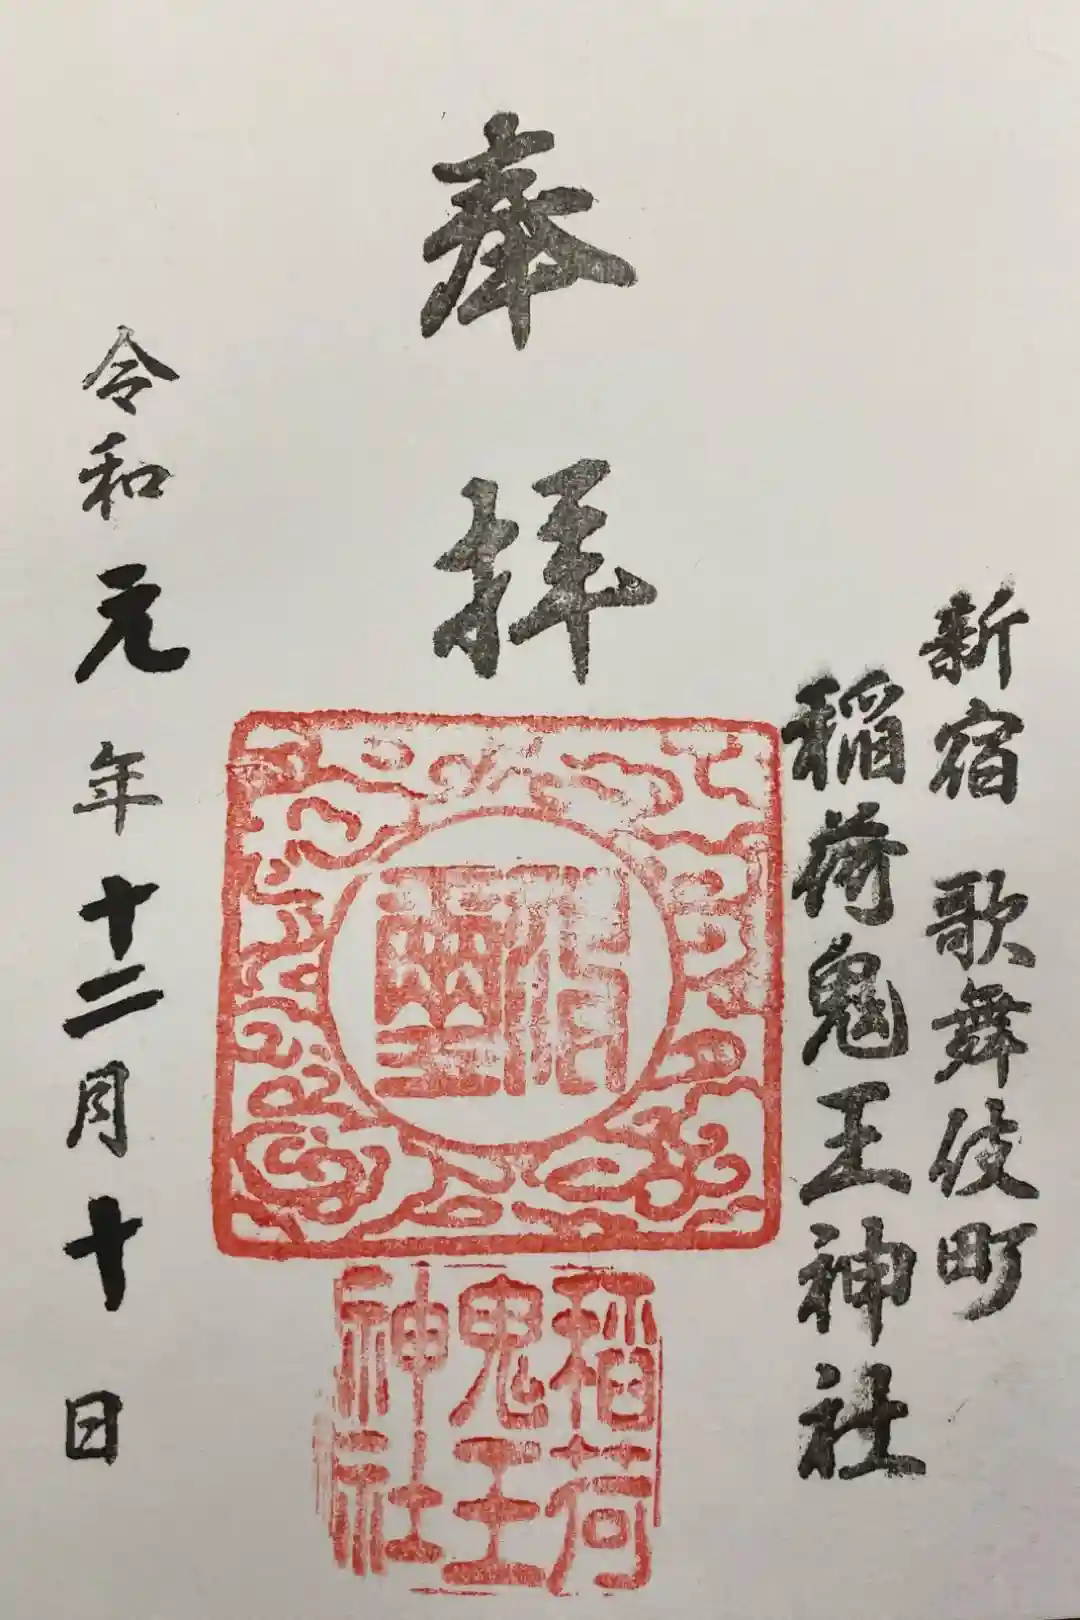 新宿 歌舞伎町
稲荷鬼王神社
奉拝
稲荷
鬼王
神社
令和元年十二月十日